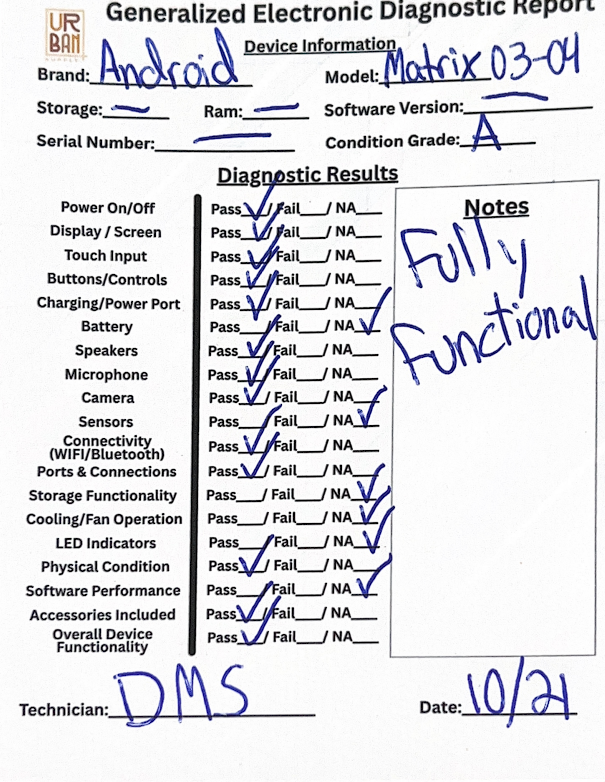 UR
BAN
Generalized Electronic Diagnostic Report
Device Information
Brand: Android Model: Matrix 03-04
Storage: — Ram: — Software Version: —
Serial Number: — Condition Grade: A
Diagnostic Results
Notes
Fully
Functional
Power On/Off Pass ✓/ Fail___/ NA___
Display / Screen Pass ✓/ Fail___/ NA___
Touch Input Pass ✓/ Fail___/ NA___
Buttons/Controls Pass ✓/ Fail___/ NA___
Charging/Power Port Pass ✓/ Fail___/ NA___
Battery Pass___/ Fail___/ NA ✓
Speakers Pass ✓/ Fail___/ NA___
Microphone Pass ✓/ Fail___/ NA___
Camera Pass ✓/ Fail___/ NA___
Sensors Pass___/ Fail___/ NA ✓
Connectivity
(WIFI/Bluetooth) Pass ✓/ Fail___/ NA___
Ports & Connections Pass ✓/ Fail___/ NA___
Storage Functionality Pass___/ Fail___/ NA ✓
Cooling/Fan Operation Pass___/ Fail___/ NA ✓
LED Indicators Pass___/ Fail___/ NA ✓
Physical Condition Pass ✓/ Fail___/ NA___
Software Performance Pass___/ Fail___/ NA ✓
Accessories Included Pass ✓/ Fail___/ NA___
Overall Device
Functionality Pass ✓/ Fail___/ NA___
Technician: DMS Date: 10/21